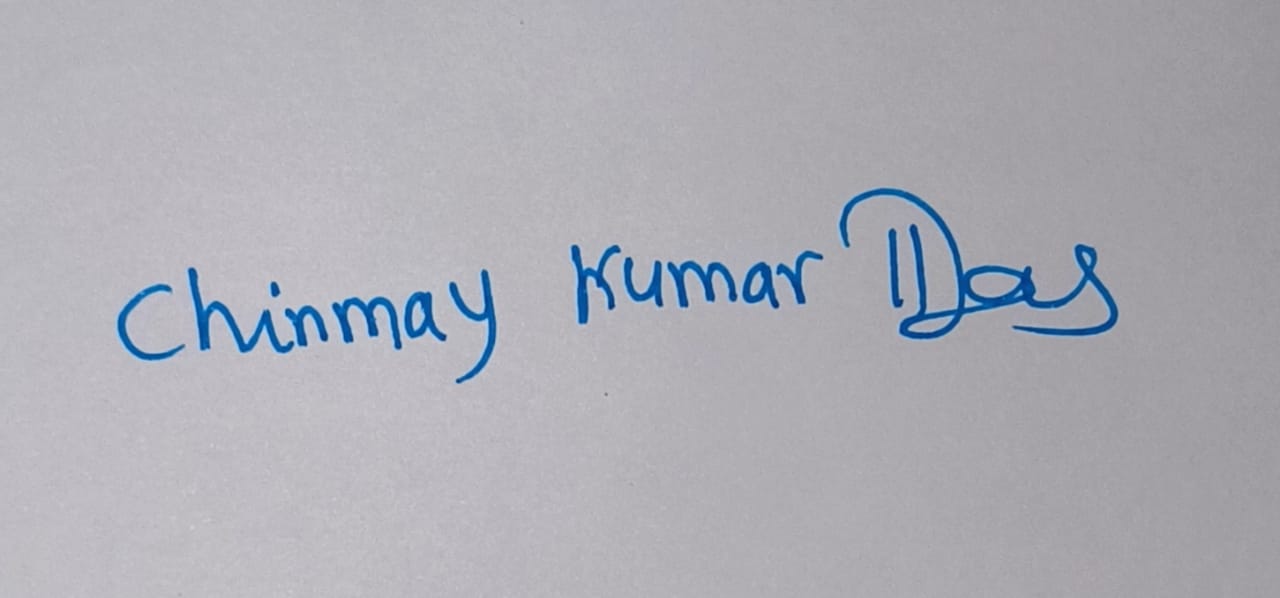 Chinmay Kumar Das